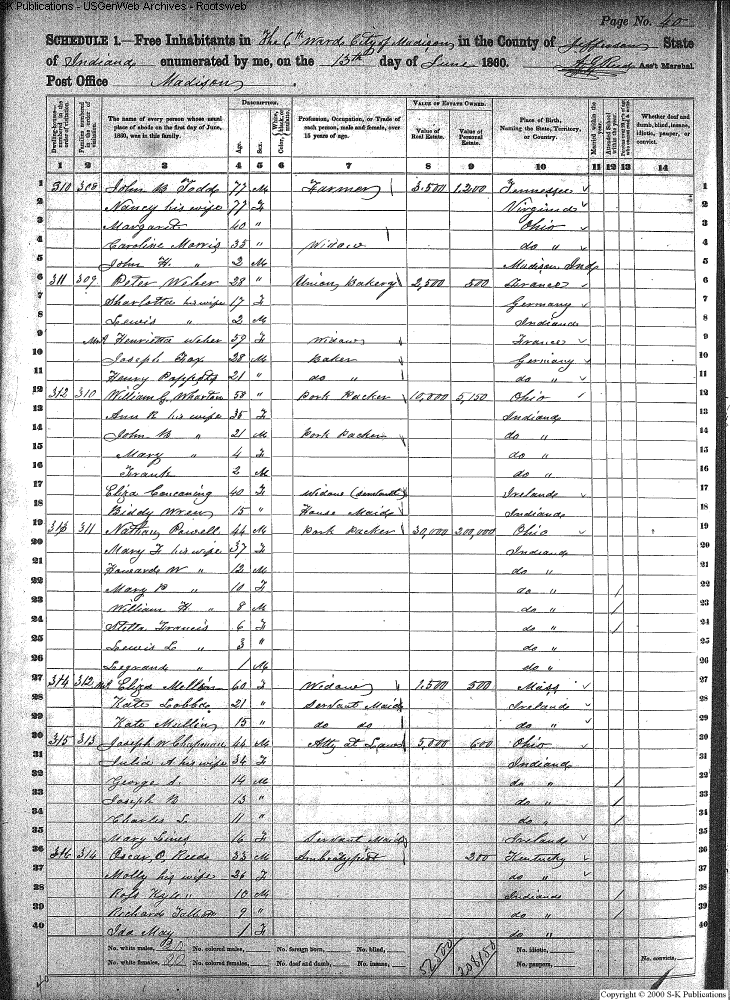 S-K Publications - USGenWeb Archives - Rootsweb
Page No. 40
SCHEDULE 1.—Free Inhabitants in The 6th Ward City of Madison in the County of Jefferson State
of Indiana enumerated by me, on the 13th day of June 1860. Ass't Marshal.
Post Office Madison
Dwelling-houses—numbered in the order of visitation.
Families numbered in the order of visitation.
The name of every person whose usual place of abode on the first day of June, 1860, was in this family.
DESCRIPTION.
Age.
Sex.
Color, White, black, or mulatto.
Profession, Occupation, or Trade of each person, male and female, over 15 years of age.
VALUE OF ESTATE OWNED.
Value of Real Estate.
Value of Personal Estate.
Place of Birth, Naming the State, Territory, or Country.
Married within the year.
Attended School within the year.
Whether deaf and dumb, blind, insane, idiotic, pauper, or convict.
1 2 3 4 5 6 7 8 9 10 11 12 13 14
1 310 308 John B Todd 77 M Farmer 3.500 1.200 Tennessee 1
2 Nancy his wife 77 F Virginia 2
3 Margaret 40 " Ohio 3
4 Caroline Morris 35 " Widow do " 4
5 John H. " 2 M Madison Ind 5
6 311 309 Peter Weber 28 " Union Bakery 2,500 500 France 6
7 Sharlotta his wife 17 F Germany 7
8 Lewis " 2 M Indiana 8
9 Henrietta Weber 59 F Widow France 9
10 Joseph Fox 28 M Baker Germany 10
11 Henry 21 " do " do " 11
12 312 310 William G. Wharton 58 " Pork Packer 10,000 5,150 Ohio 12
13 Ann R his wife 35 F Indiana 13
14 John B " 21 M Pork Packer do " 14
15 Mary " 4 F do " 15
16 Frank 2 M do " 16
17 Eliza Concaning 40 F Widow (Servant) Ireland 17
18 Biddy Wren 15 " House Maid Indiana 18
19 313 311 Nathan Powell 44 M Pork Packer 30,000 200,000 Ohio 19
20 Mary F his wife 37 F Indiana 20
21 Howard W " 12 M do " 21
22 Mary P " 10 F do " / 22
23 William H. " 8 M do " / 23
24 Stella Francis 6 F do " / 24
25 Lewis L " 3 " do " 25
26 Legrand " 1 M do " 26
27 314 312 Eliza 60 F Widow 1.500 500 Mass 27
28 Kate 21 " Servant Maid Ireland 28
29 Kate Mullin 15 " do do do " 29
30 315 313 Joseph W Chapman 44 M Atty at Law 5,000 600 Ohio 30
31 Julia A his wife 34 F Indiana 31
32 George S. 14 M do " / 32
33 Joseph B 13 " do " / 33
34 Charles S. 11 " do " / 34
35 Mary Lines 16 F Servant Maid Ireland 35
36 316 314 Oscar, O, Reed 33 M Ambrotypist 200 Kentucky 36
37 Molly his wife 26 F do " 37
38 Ross Kyle " 10 M Indiana / 38
39 Richard 9 " do " / 39
40 Ida May 1 F do " 40
No. white males, 20 No. colored males, No. foreign born, No. blind, 52,500 208,150 No. idiotic,
No. white females, 20 No. colored females, No. deaf and dumb, No. insane, No. paupers, No. convicts,
40
Copyright © 2000 S-K Publications